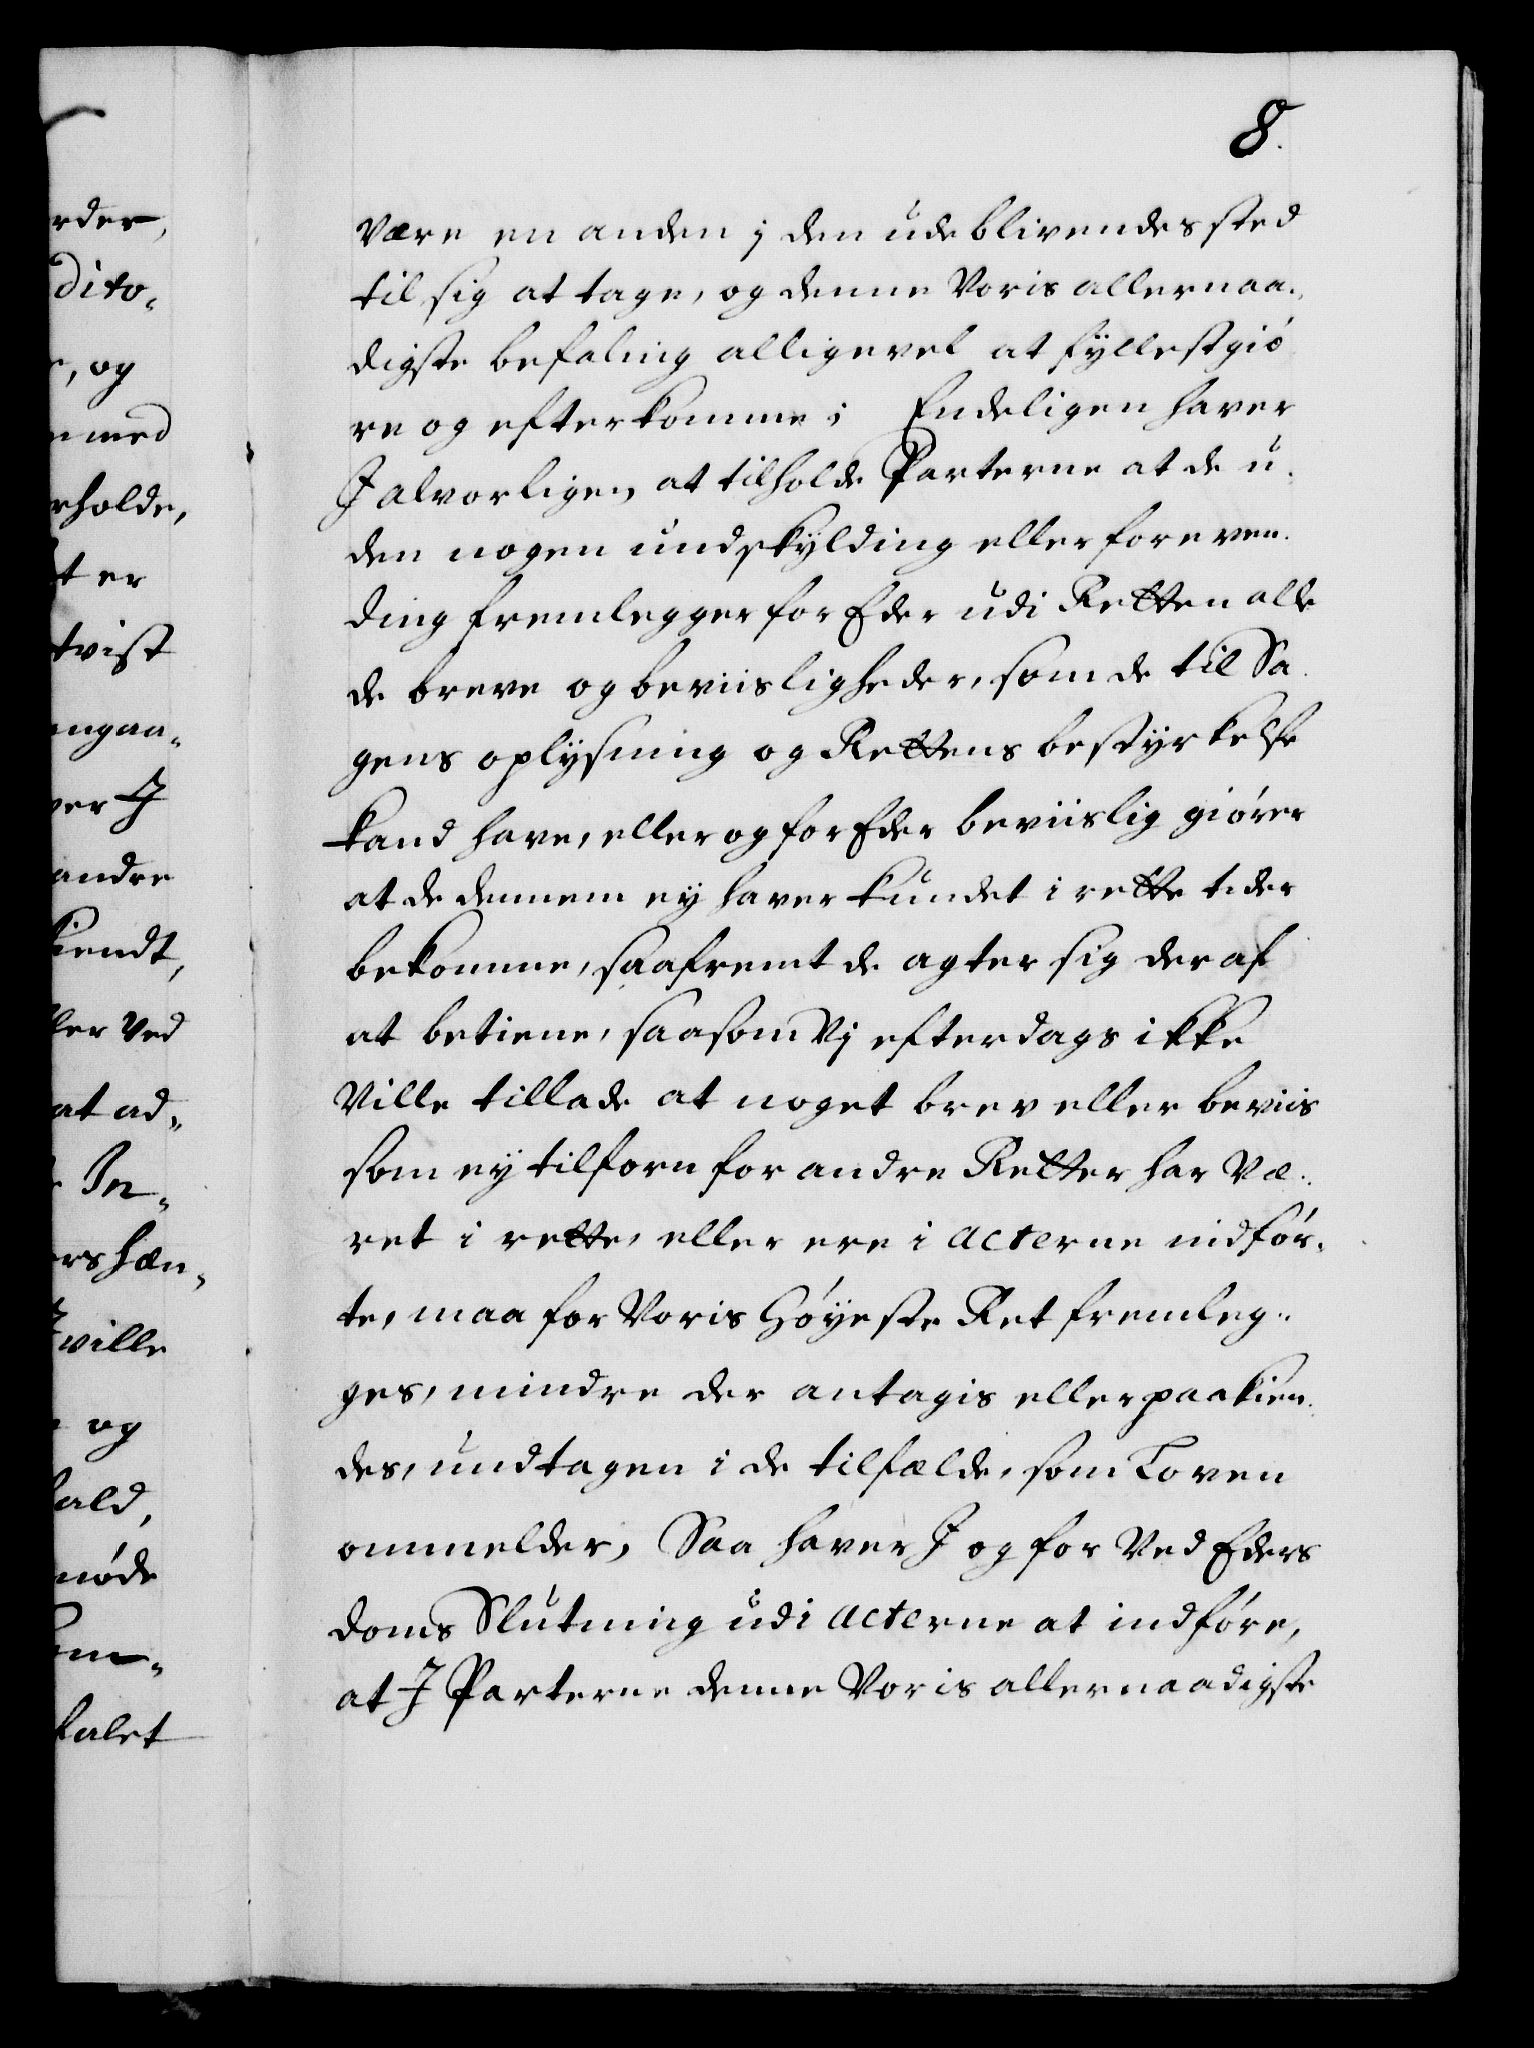 8.
rder,
dito„
e, og
n med
rholde,
t er
tvist
angaa„
ver I
andre
kiendt,
ller Ved
at ad„
In„
ers hæn„
ville
og
fald,
møde
om„
falet
være en anden j den udeblivendes sted
til sig at tage, og denne Voris allernaa„
digste befaling alligevel at fyllestgiö
re og efterkomme; Endeligen haver
I alvorligen at tilholde Parterne at de u„
den nogen undskylding eller foreven„
ding fremlegger for Eder udi Retten alle
de breve og beviisligheder, som de til Sa„
gens oplysning og Rettens bestyrkelse
kand have, eller og for Eder beviislig giörer
at de dennem ey haver kundet i rette tider
bekomme, saafremt de agter sig deraf
at betiene, saasom Vj efterdags ikke
Ville tillade at noget brev eller beviis
som ey tilforn for andre Retter har Væ„
ret i rette, eller ere i Acterne indför„
te, maa for Voris Höyeste Ret fremleg„
ges, mindre der antagis eller paakien„
des, undtagen i de tilfælde, som Loven
ommelder, Saa haver I og for Ved Eders
doms Slutning udi Acterne at indföre,
at I Parterne denne Voris allernaadigste